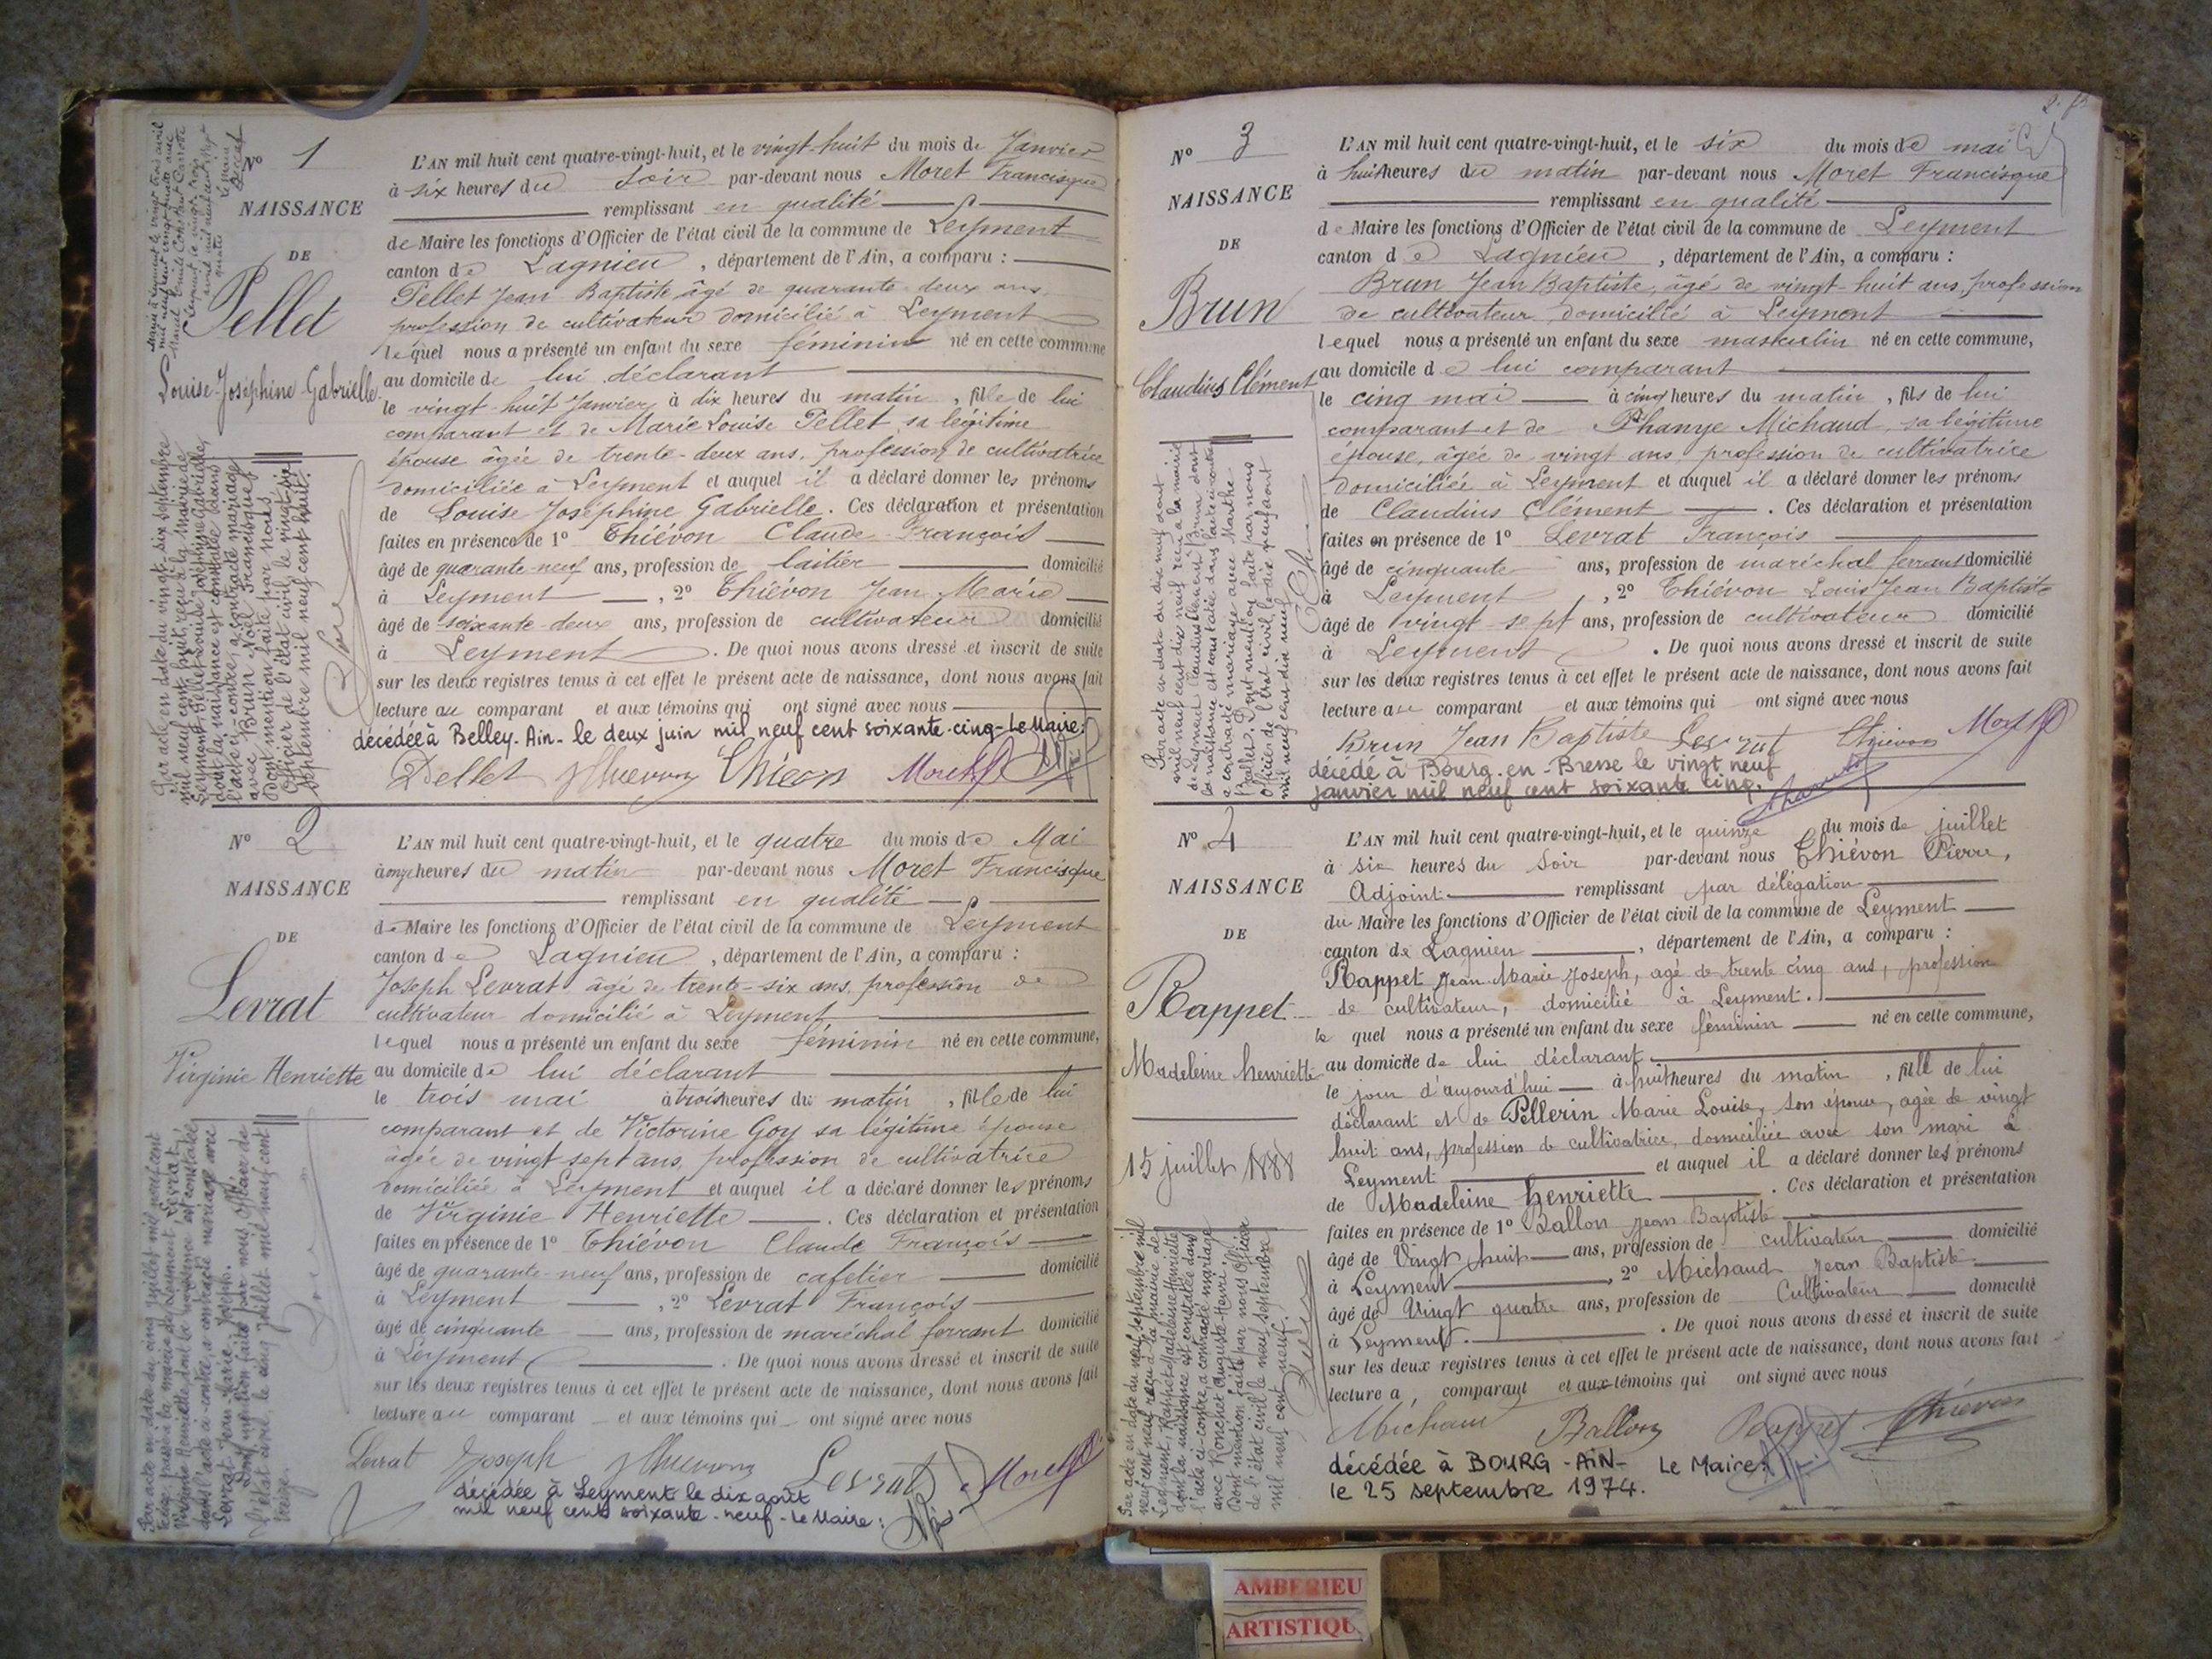 Nº 1
NAISSANCE
DE
Pellet
Louise Joséphine Gabrielle
Par acte en date du vingt-six septembre
mil neuf cent huit, reçu à la Mairie de
Leyment, Pellet Louise Joséphine Gabrielle
dont la naissance est constatée dans
l'acte ci-contre, a contracté mariage
avec Brun Noël Françisque
Dont mention faite par nous,
Officier de l'état civil, le vingt-six
septembre mil neuf cent huit.
L'AN mil huit cent quatre-vingt-huit, et le vingt-huit du mois de Janvier
à six heures du soir par-devant nous Moret Francisque
remplissant en qualité
de Maire les fonctions d'Officier de l'état civil de la commune de Leyment
canton de Lagnieu, département de l'Ain, a comparu :
Pellet Jean Baptiste âgé de quarante-deux ans,
profession de cultivateur domicilié à Leyment
lequel nous a présenté un enfant du sexe féminin né en cette commune
au domicile de lui déclarant
le vingt-huit Janvier à dix heures du matin, fille de lui
comparant et de Marie Louise Pellet sa légitime
épouse âgée de trente-deux ans, profession de cultivatrice
domiciliée à Leyment et auquel il a déclaré donner les prénoms
de Louise Joséphine Gabrielle. Ces déclaration et présentation
faites en présence de 1º Thiévon Claude François
âgé de quarante-neuf ans, profession de laitier domicilié
à Leyment, 2º Thiévon Jean Marie
âgé de soixante-deux ans, profession de cultivateur domicilié
à Leyment. De quoi nous avons dressé et inscrit de suite
sur les deux registres tenus à cet effet le présent acte de naissance, dont nous avons fait
lecture au comparant et aux témoins qui ont signé avec nous
décédée à Belley-Ain-le deux juin mil neuf cent soixante-cinq-Le Maire:
Pellet Thievon Thiévon Moret F
Nº 2
NAISSANCE
DE
Levrat
Virginie Henriette
Par acte en date du cinq juillet mil neuf cent
treize, passé à la mairie de Leyment, Levrat
Virginie Henriette, dont la naissance est constatée
dans l'acte ci-contre, a contracté mariage avec
Levrat Jean-Marie Joseph.
Dont mention faite par nous, officier de
l'état civil, le cinq juillet mil neuf cent
treize.
L'AN mil huit cent quatre-vingt-huit, et le quatre du mois de Mai
à onze heures du matin par-devant nous Moret Francisque
remplissant en qualité
de Maire les fonctions d'Officier de l'état civil de la commune de Leyment
canton de Lagnieu, département de l'Ain, a comparu :
Joseph Levrat âgé de trente-six ans, profession de
cultivateur domicilié à Leyment
lequel nous a présenté un enfant du sexe féminin né en cette commune,
au domicile de lui déclarant
le trois mai à trois heures du matin, fille de lui
comparant et de Victorine Goy sa légitime épouse
âgée de vingt sept ans, profession de cultivatrice
domiciliée à Leyment et auquel il a déclaré donner les prénoms
de Virginie Henriette. Ces déclaration et présentation
faites en présence de 1º Thiévon Claude François
âgé de quarante-neuf ans, profession de cafetier domicilié
à Leyment, 2º Levrat François
âgé de cinquante ans, profession de maréchal ferrant domicilié
à Leyment. De quoi nous avons dressé et inscrit de suite
sur les deux registres tenus à cet effet le présent acte de naissance, dont nous avons fait
lecture au comparant et aux témoins qui ont signé avec nous
Levrat Joseph Thievon Levrat Moret F
décédée à Leyment le dix août
mil neuf cent soixante-neuf-Le Maire:
Nº 3
NAISSANCE
DE
Brun
Claudius Clément
L'AN mil huit cent quatre-vingt-huit, et le six du mois de mai
à huit heures du matin par-devant nous Moret Francisque
remplissant en qualité
de Maire les fonctions d'Officier de l'état civil de la commune de Leyment
canton de Lagnieu, département de l'Ain, a comparu :
Brun Jean Baptiste, âgé de vingt-huit ans, profession
de cultivateur domicilié à Leyment
lequel nous a présenté un enfant du sexe masculin né en cette commune,
au domicile de lui comparant
le cinq mai à cinq heures du matin, fils de lui
comparant et de Phanye Michaud, sa légitime
épouse, âgée de vingt ans, profession de cultivatrice
domiciliée à Leyment et auquel il a déclaré donner les prénoms
de Claudius Clément. Ces déclaration et présentation
faites en présence de 1º Levrat François
âgé de cinquante ans, profession de maréchal ferrant domicilié
à Leyment, 2º Thiévon Louis Jean Baptiste
âgé de vingt-sept ans, profession de cultivateur domicilié
à Leyment. De quoi nous avons dressé et inscrit de suite
sur les deux registres tenus à cet effet le présent acte de naissance, dont nous avons fait
lecture au comparant et aux témoins qui ont signé avec nous
Brun Jean Baptiste Levrat Thiévon Moret F
décédé à Bourg-en-Bresse le vingt neuf
janvier mil neuf cent soixante cinq.
Nº 4
NAISSANCE
DE
Rappet
Madeleine Henriette
15 juillet 1888
Par acte en date du neuf septembre mil
neuf cent neuf reçu à la mairie de
Leyment, Rappet Madeleine Henriette
dont la naissance est constatée dans
l'acte ci-contre, a contracté mariage
avec Ronchet Auguste-Henri.
Dont mention faite par nous Officier
de l'état civil, le neuf septembre
mil neuf cent neuf.
L'AN mil huit cent quatre-vingt-huit, et le quinze du mois de juillet
à six heures du soir par-devant nous Thiévon Pierre,
Adjoint remplissant par délégation
du Maire les fonctions d'Officier de l'état civil de la commune de Leyment
canton de Lagnieu, département de l'Ain, a comparu :
Rappet Jean-Marie Joseph, agé de trente cinq ans, profession
de cultivateur, domicilié à Leyment.
le quel nous a présenté un enfant du sexe féminin né en cette commune,
au domicile de lui déclarant
le jour d'aujourd'hui à huit heures du matin, fille de lui
déclarant et de Pellerin Marie Louise, son épouse, agée de vingt
huit ans, profession de cultivatrice, domiciliée avec son mari à
Leyment et auquel il a déclaré donner les prénoms
de Madeleine Henriette. Ces déclaration et présentation
faites en présence de 1º Ballon Jean Baptiste
âgé de Vingt huit ans, profession de cultivateur domicilié
à Leyment, 2º Michaud Jean Baptiste
âgé de Vingt quatre ans, profession de Cultivateur domicilié
à Leyment. De quoi nous avons dressé et inscrit de suite
sur les deux registres tenus à cet effet le présent acte de naissance, dont nous avons fait
lecture a, comparant et aux témoins qui ont signé avec nous
Michaud Ballon Rappet Thiévon
décédée à BOURG-AIN- Le Maire:
le 25 septembre 1974.
AMBERIEU
ARTISTIQU